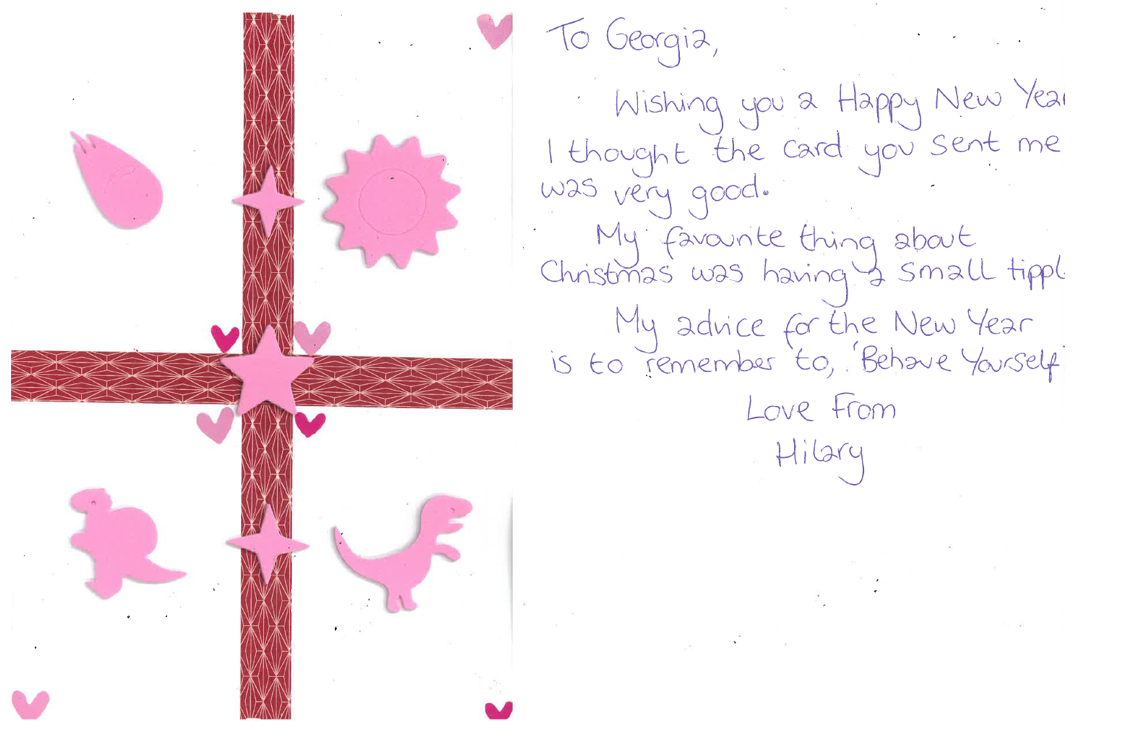 To Georgia,
Wishing you a Happy New Year
I thought the card you sent me
was very good.
My favourite thing about
Christmas was having a small tippl
My advice for the New Year
is to remember to, 'Behave Yourself'
Love From
Hilary